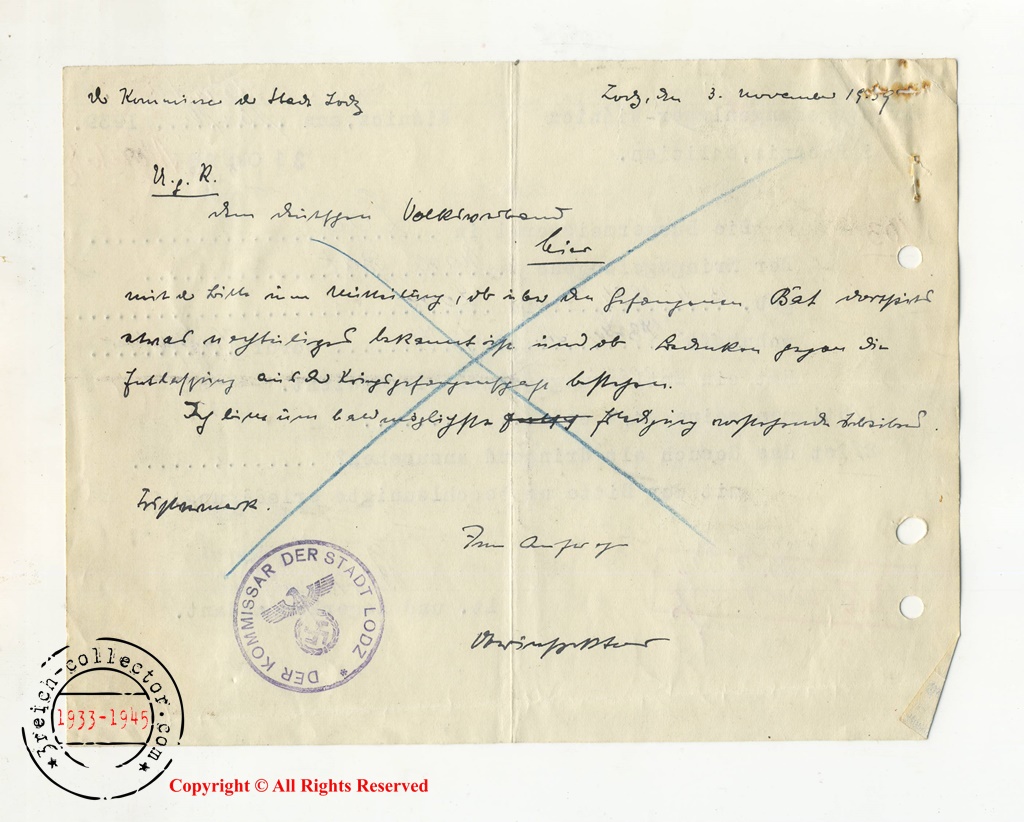 der Kommissar der Stadt Lodz
Lodz, den 3. November 1939
U. g. R.
dem deutschen Volksverband
hier
mit der Bitte um Mitteilung, ob über den Gefangenen Bat
etwas nachteiliges bekannt ist und ob Bedenken gegen die
Entlassung aus der Kriegsgefangenschaft bestehen.
Ich bitte um baldmöglichste Erledigung
Im Auftrag
DER KOMMISSAR DER STADT LODZ *
Oberinspektor
* 3reich-collector.com *
1933-1945
Copyright © All Rights Reserved